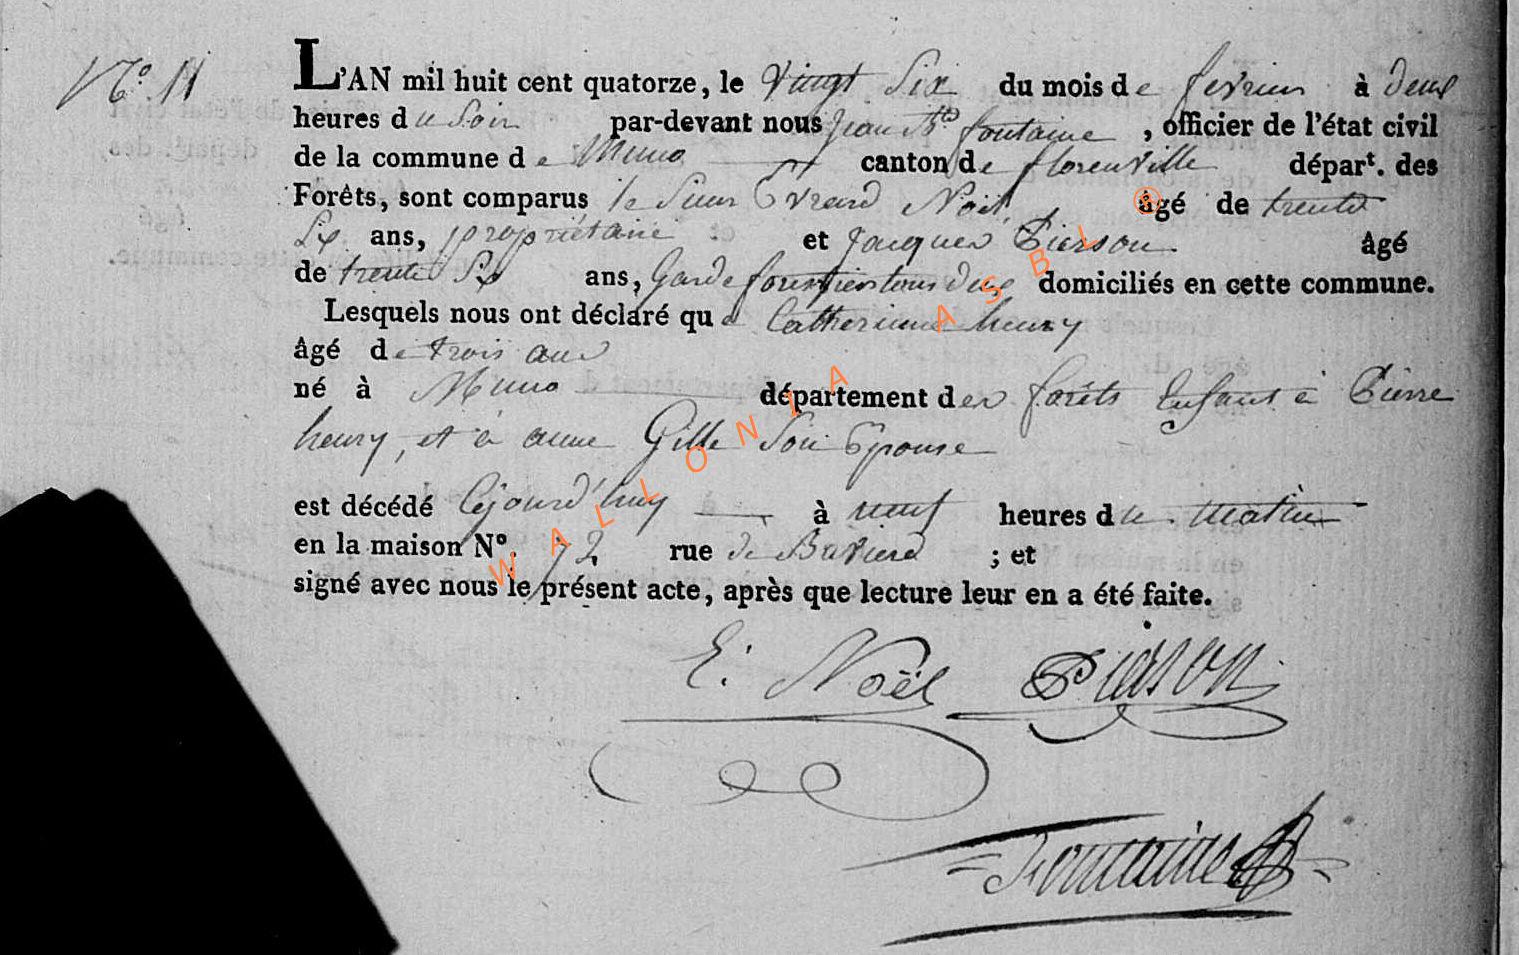 N.° 11
L'AN mil huit cent quatorze, le vingt Six du mois de fevrier à deux
heures du Soir par-devant nous Jean Bte fontaine, officier de l'état civil
de la commune de Muno canton de florenville départ. des
Forêts, sont comparus le Sieur Evrard Noël âgé de trente
Six ans, propriétaire et Jacques Pierson âgé
de trente Six ans, Garde forestier tous deux domiciliés en cette commune.
Lesquels nous ont déclaré que Catherinne henry
âgé de trois ans
né à Muno département des forêts Enfant à Pierre
henry, et à anne Gille Son Epouse
est décédé Cejourd'huy à neuf heures du matin
en la maison N°. 72 rue de Baviere ; et
signé avec nous le présent acte, après que lecture leur en a été faite.
E. Noël Pierson
Fontaine
WALLONIA ASBL ®